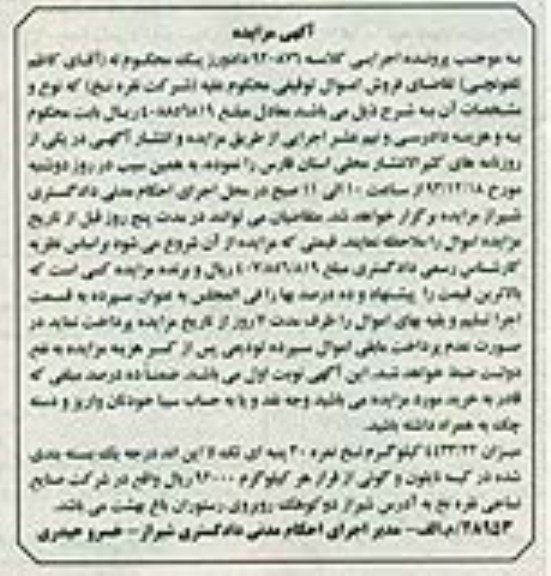 آگهی مزایده
به موجب پرونده اجرایی کلاسه ۹۲۰۸۷۶ دادورز یک، محکوم له (آقای کاظم
تفتونچی) تقاضای فروش اموال توقیفی محکوم علیه (شرکت نقره نخ) که نوع و
مشخصات آن به شرح ذیل می باشد معادل مبلغ ریال بابت محکوم
به و هزینه دادرسی و نیم عشر اجرایی از طریق مزایده و انتشار آگهی در یکی از
روزنامه های کثیرالانتشار محلی استان فارس را نموده، به همین سبب در روز دوشنبه
مورخ ۹۳/۱۲/۱۸ از ساعت ۱۰ الی ۱۱ صبح در محل اجرای احکام مدنی دادگستری
شیراز مزایده برگزار خواهد شد. متقاضیان می توانند در مدت پنج روز قبل از تاریخ
مزایده اموال را ملاحظه نمایند. قیمتی که مزایده از آن شروع می شود براساس نظریه
کارشناس رسمی دادگستری مبلغ ریال و برنده مزایده کسی است که
بالاترین قیمت را پیشنهاد و ده درصد بها را فی المجلس به عنوان سپرده به قسمت
اجرا تسلیم و بقیه بهای اموال را ظرف مدت روز از تاریخ مزایده پرداخت نماید در
صورت عدم پرداخت مابقی اموال سپرده تودیعی پس از کسر هزینه مزایده به نفع
دولت ضبط خواهد شد. این آگهی نوبت اول می باشد. ضمناً ده درصد مبلغی که
قادر به خرید مورد مزایده می باشید وجه نقد و یا به حساب سیبا خودتان واریز و دسته
چک به همراه داشته باشید.
میزان ۴۴۳۳/۲۲ کیلوگرم نخ نمره ۳۰ پنبه ای تک لا این اند درجه یک بسته بندی
شده در کیسه نایلون و گونی از قرار هر کیلوگرم ۹۲۰۰۰ ریال واقع در شرکت صنایع
نساجی نقره نخ به آدرس شیراز دوکوهک روبروی رستوران باغ بهشت می باشد.
۲۸۹۵۳/م.الف- مدیر اجرای احکام مدنی دادگستری شیراز- خسرو حیدری